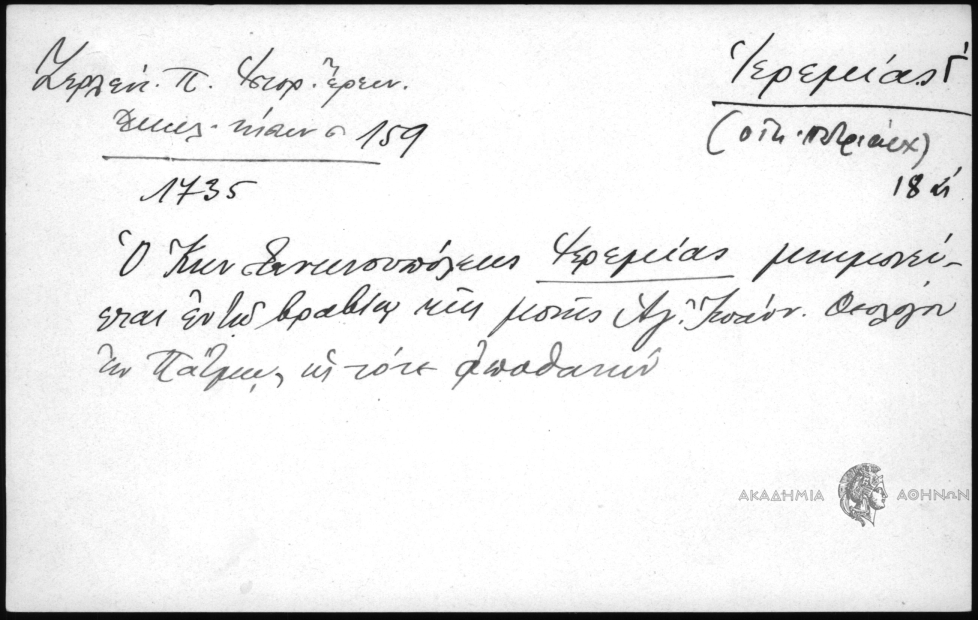 Ζερλέντ. Π. Ἱστορ. Ἔρευν.
ἐκκλ. νήσων σ 159
1735
Ἱερεμίας Γ
(οἰκ. πατριάρχ)
18 αἰ
Ὁ Κωνσταντινουπόλεως Ἱερεμίας μνημονεύ-
εται ἐν τῷ βραβίῳ τῆς μονῆς Ἁγ. Ἰωάνν. Θεολόγου
ἐν Πάτμῳ, ὡς τότε ἀποθανών
ΑΚΑΔΗΜΙΑ ΑΘΗΝΩΝ